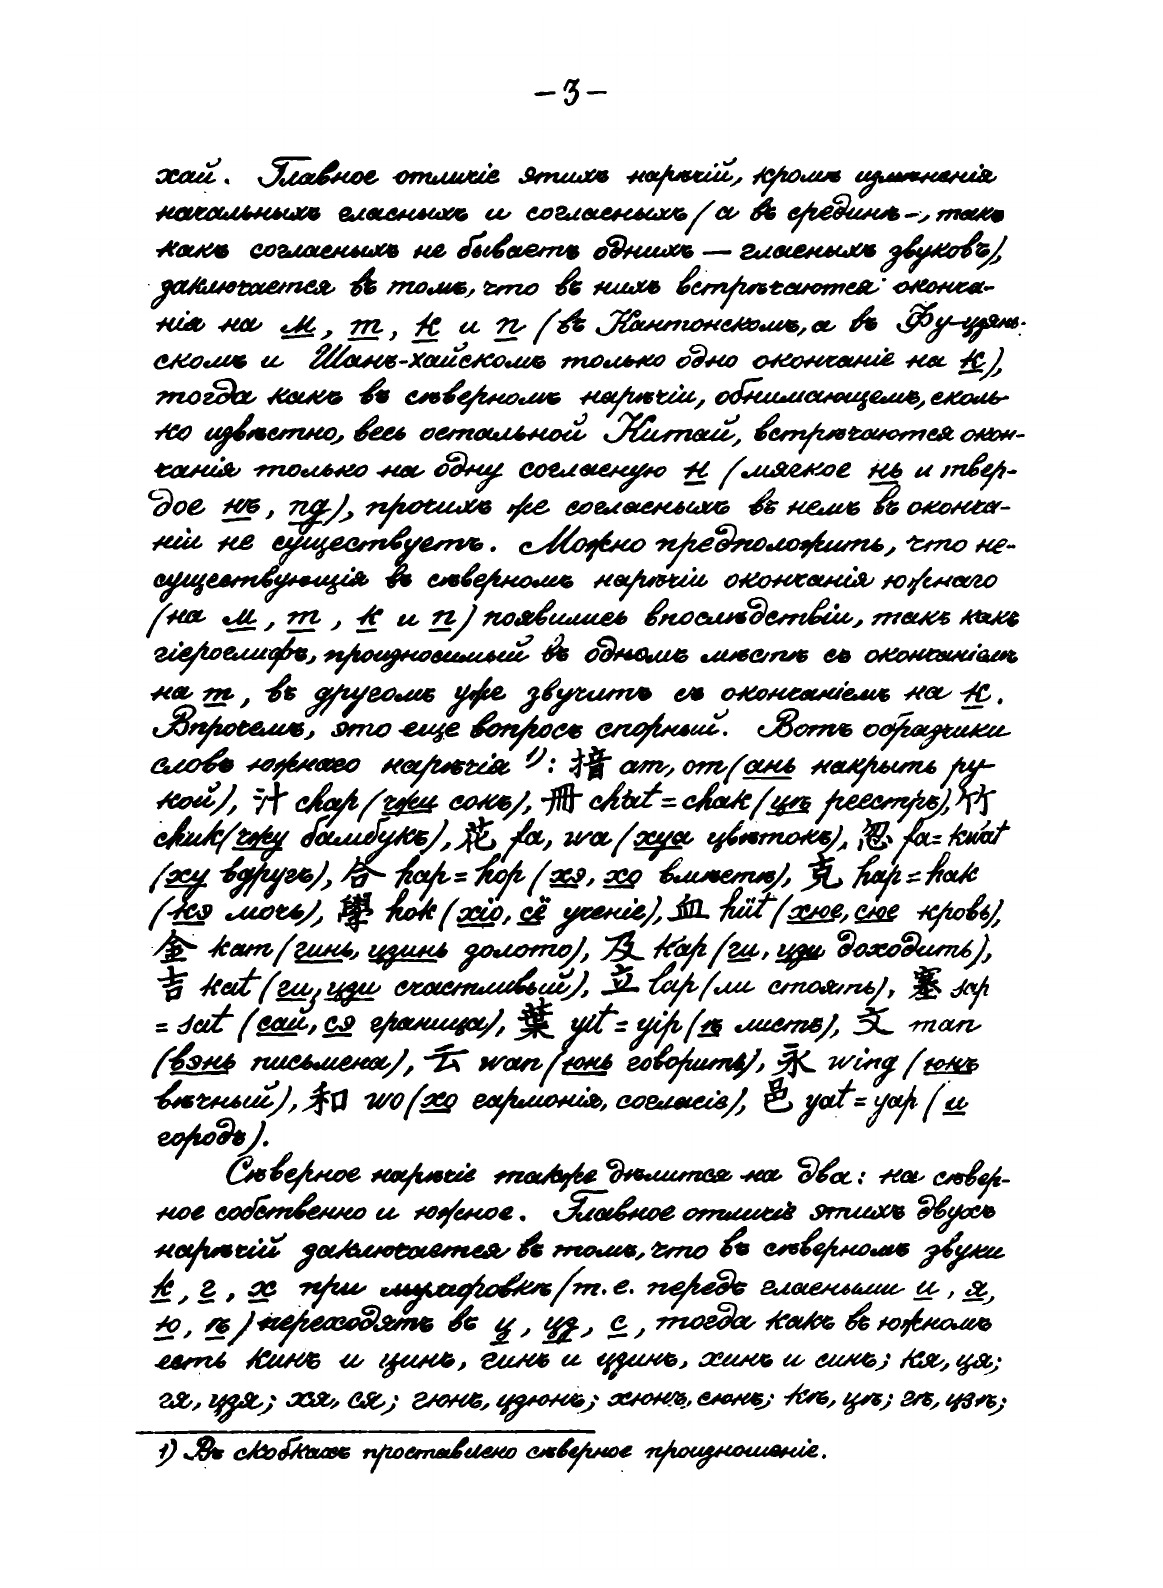 – 3 –
хай. Главное отличіе этихъ нарѣчій, кромѣ измѣненія
начальныхъ гласныхъ и согласныхъ (а въ срединѣ –, такъ
какъ согласныхъ не бываетъ однихъ — гласныхъ звуковъ),
заключается въ томъ, что въ нихъ встрѣчаются оконча-
нія на м, т, к и п (въ Кантонскомъ, а въ Фу-цзянь-
скомъ и Шанъ-хайскомъ только одно окончаніе на к),
тогда какъ въ сѣверномъ нарѣчіи, обнимающемъ, сколь-
ко извѣстно, весь остальной Китай, встрѣчаются окон-
чанія только на одну согласную н (мягкое нь и твер-
дое нъ, нд), прочихъ же согласныхъ въ немъ въ оконча-
ніи не существуетъ. Можно предположить, что не-
существующія въ сѣверномъ нарѣчіи окончанія южнаго
(на м, т, к и п) появились впослѣдствіи, такъ какъ
гіероглифъ, произносимый въ одномъ мѣстѣ съ окончаніемъ
на т, въ другомъ уже звучитъ съ окончаніемъ на к.
Впрочемъ, это еще вопросъ спорный. Вотъ образчики
словъ южнаго нарѣчія ¹): 揞 am, om (ань накрыть ру-
кой), 汁 chap (чжи сокъ), 冊 ch'at = chak (цѣ реестръ), 竹
chuk (чжу бамбукъ), 花 fa, wa (хуа цвѣтокъ), 忽 fa = kwat
(ху вдругъ), 合 hap = hop (хэ, хо вмѣстѣ), 克 hap = hak
(кэ мочь), 學 hok (хіо, сё ученіе), 血 hüt (хюе, сюе кровь),
金 kam (гинь, цзинь золото), 及 kap (ги, цзи доходить),
吉 kat (ги, цзи счастливый), 立 lap (ли стоять), 塞 sap
= sat (сай, сэ граница), 葉 yit = yip (ѣ листъ), 文 man
(вэнь письмена), 云 wan (юнь говорить), 永 wing (юнъ
вѣчный), 和 wo (хо гармонія, согласіе), 邑 yat = yap (и
городъ).
Сѣверное нарѣчіе также дѣлится на два: на сѣвер-
ное собственно и южное. Главное отличіе этихъ двухъ
нарѣчій заключается въ томъ, что въ сѣверномъ звуки
к, г, х при мулировкѣ (т. е. передъ гласными и, я,
ю, ѣ) переходятъ въ ц, цз, с, тогда какъ въ южномъ
есть кинъ и цинъ, гинъ и цзинъ, хинъ и синъ; кя, ця;
гя, цзя; хя, ся; гюнъ, цзюнъ; хюнъ, сюнъ; кѣ, цѣ; гѣ, цзѣ;
1) Въ скобкахъ проставлено сѣверное произношеніе.